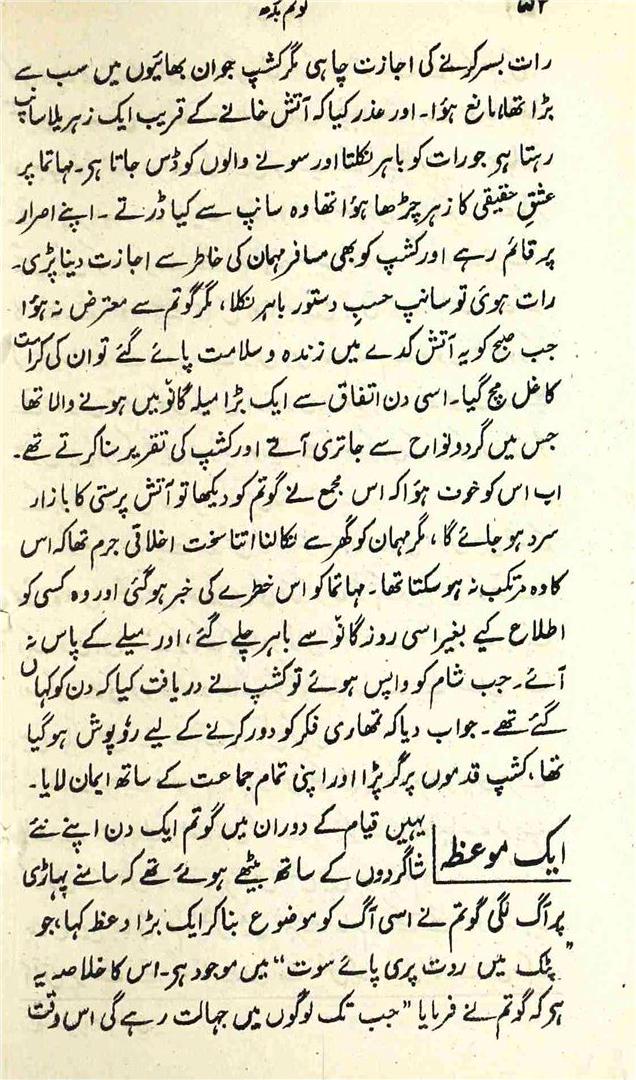 ۵۲
گوتم بدھ
رات بسر کرنے کی اجازت چاہی مگر کشپ جو ان بھائیوں میں سب سے
بڑا تھا، مانع ہؤا۔ اور عذر کیا کہ آتش خانے کے قریب ایک زہریلا سانپ
رہتا ہو جو رات کو باہر نکلتا اور سونے والوں کو ڈس جاتا ہو۔ مہاتما پر
عشقِ حقیقی کا زہر چڑھا ہؤا تھا وہ سانپ سے کیا ڈرتے۔ اپنے اصرار
پر قائم رہے اور کشپ کو بھی مسافر مہمان کی خاطر سے اجازت دینا پڑی۔
رات ہوئی تو سانپ حسبِ دستور باہر نکلا، مگر گوتم سے معترض نہ ہؤا
جب صبح کو یہ آتش کدے میں زندہ و سلامت پائے گئے تو ان کی کرامت
کا غل مچ گیا۔ اسی دن اتفاق سے ایک بڑا میلہ گانؤ میں ہونے والا تھا
جس میں گرد و نواح سے جاتری آتے اور کشپ کی تقریر سنا کرتے تھے۔
اب اس کو خوف ہؤا کہ اس مجمع نے گوتم کو دیکھا تو آتش پرستی کا بازار
سرد ہو جائے گا، مگر مہمان کو گھر سے نکالنا اتنا سخت اخلاقی جرم تھا کہ اس
کا وہ مرتکب نہ ہو سکتا تھا۔ مہاتما کو اس خطرے کی خبر ہو گئی اور وہ کسی کو
اطلاع کیے بغیر اسی روز گانؤ سے باہر چلے گئے، اور میلے کے پاس نہ
آئے۔ جب شام کو واپس ہوئے تو کشپ نے دریافت کیا کہ دن کو کہاں
گئے تھے۔ جواب دیا کہ تمھاری فکر کو دور کرنے کے لیے روٗپوش ہو گیا
تھا، کشپ قدموں پر گر پڑا اور اپنی تمام جماعت کے ساتھ ایمان لایا۔
ایک موعظہ
یہیں قیام کے دوران میں گوتم ایک دن اپنے نئے
شاگردوں کے ساتھ بیٹھے ہوئے تھے کہ سامنے پہاڑی
پر آگ لگی گوتم نے اسی آگ کو موضوع بنا کر ایک بڑا وعظ کہا، جو
"پٹک میں ردت پری پائے سوت" میں موجود ہو۔ اس کا خلاصہ یہ
ہو کہ گوتم نے فرمایا "جب تک لوگوں میں جہالت رہے گی اس وقت